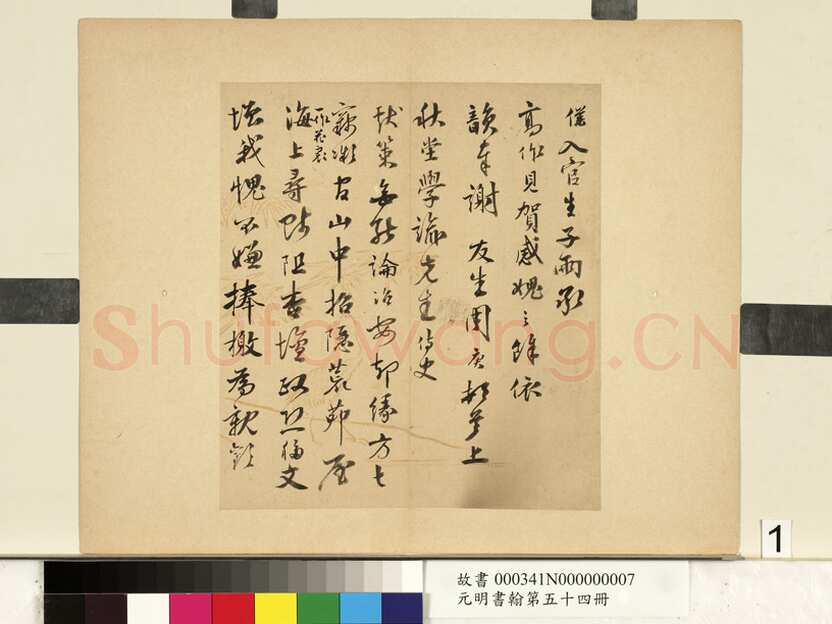 僕入官生子兩承
高作見賀感愧之餘依
韻奉謝 友生周庚稽首上
秋堂學諭先生侍史
伏策無能論治安却緣方士
山中招隱茅屋
作花影
海上尋 阻杏壇 文
我愧不嫌捧檄為親
Shufawang.CN
1
故書 000341N000000007
元明書翰第五十四冊